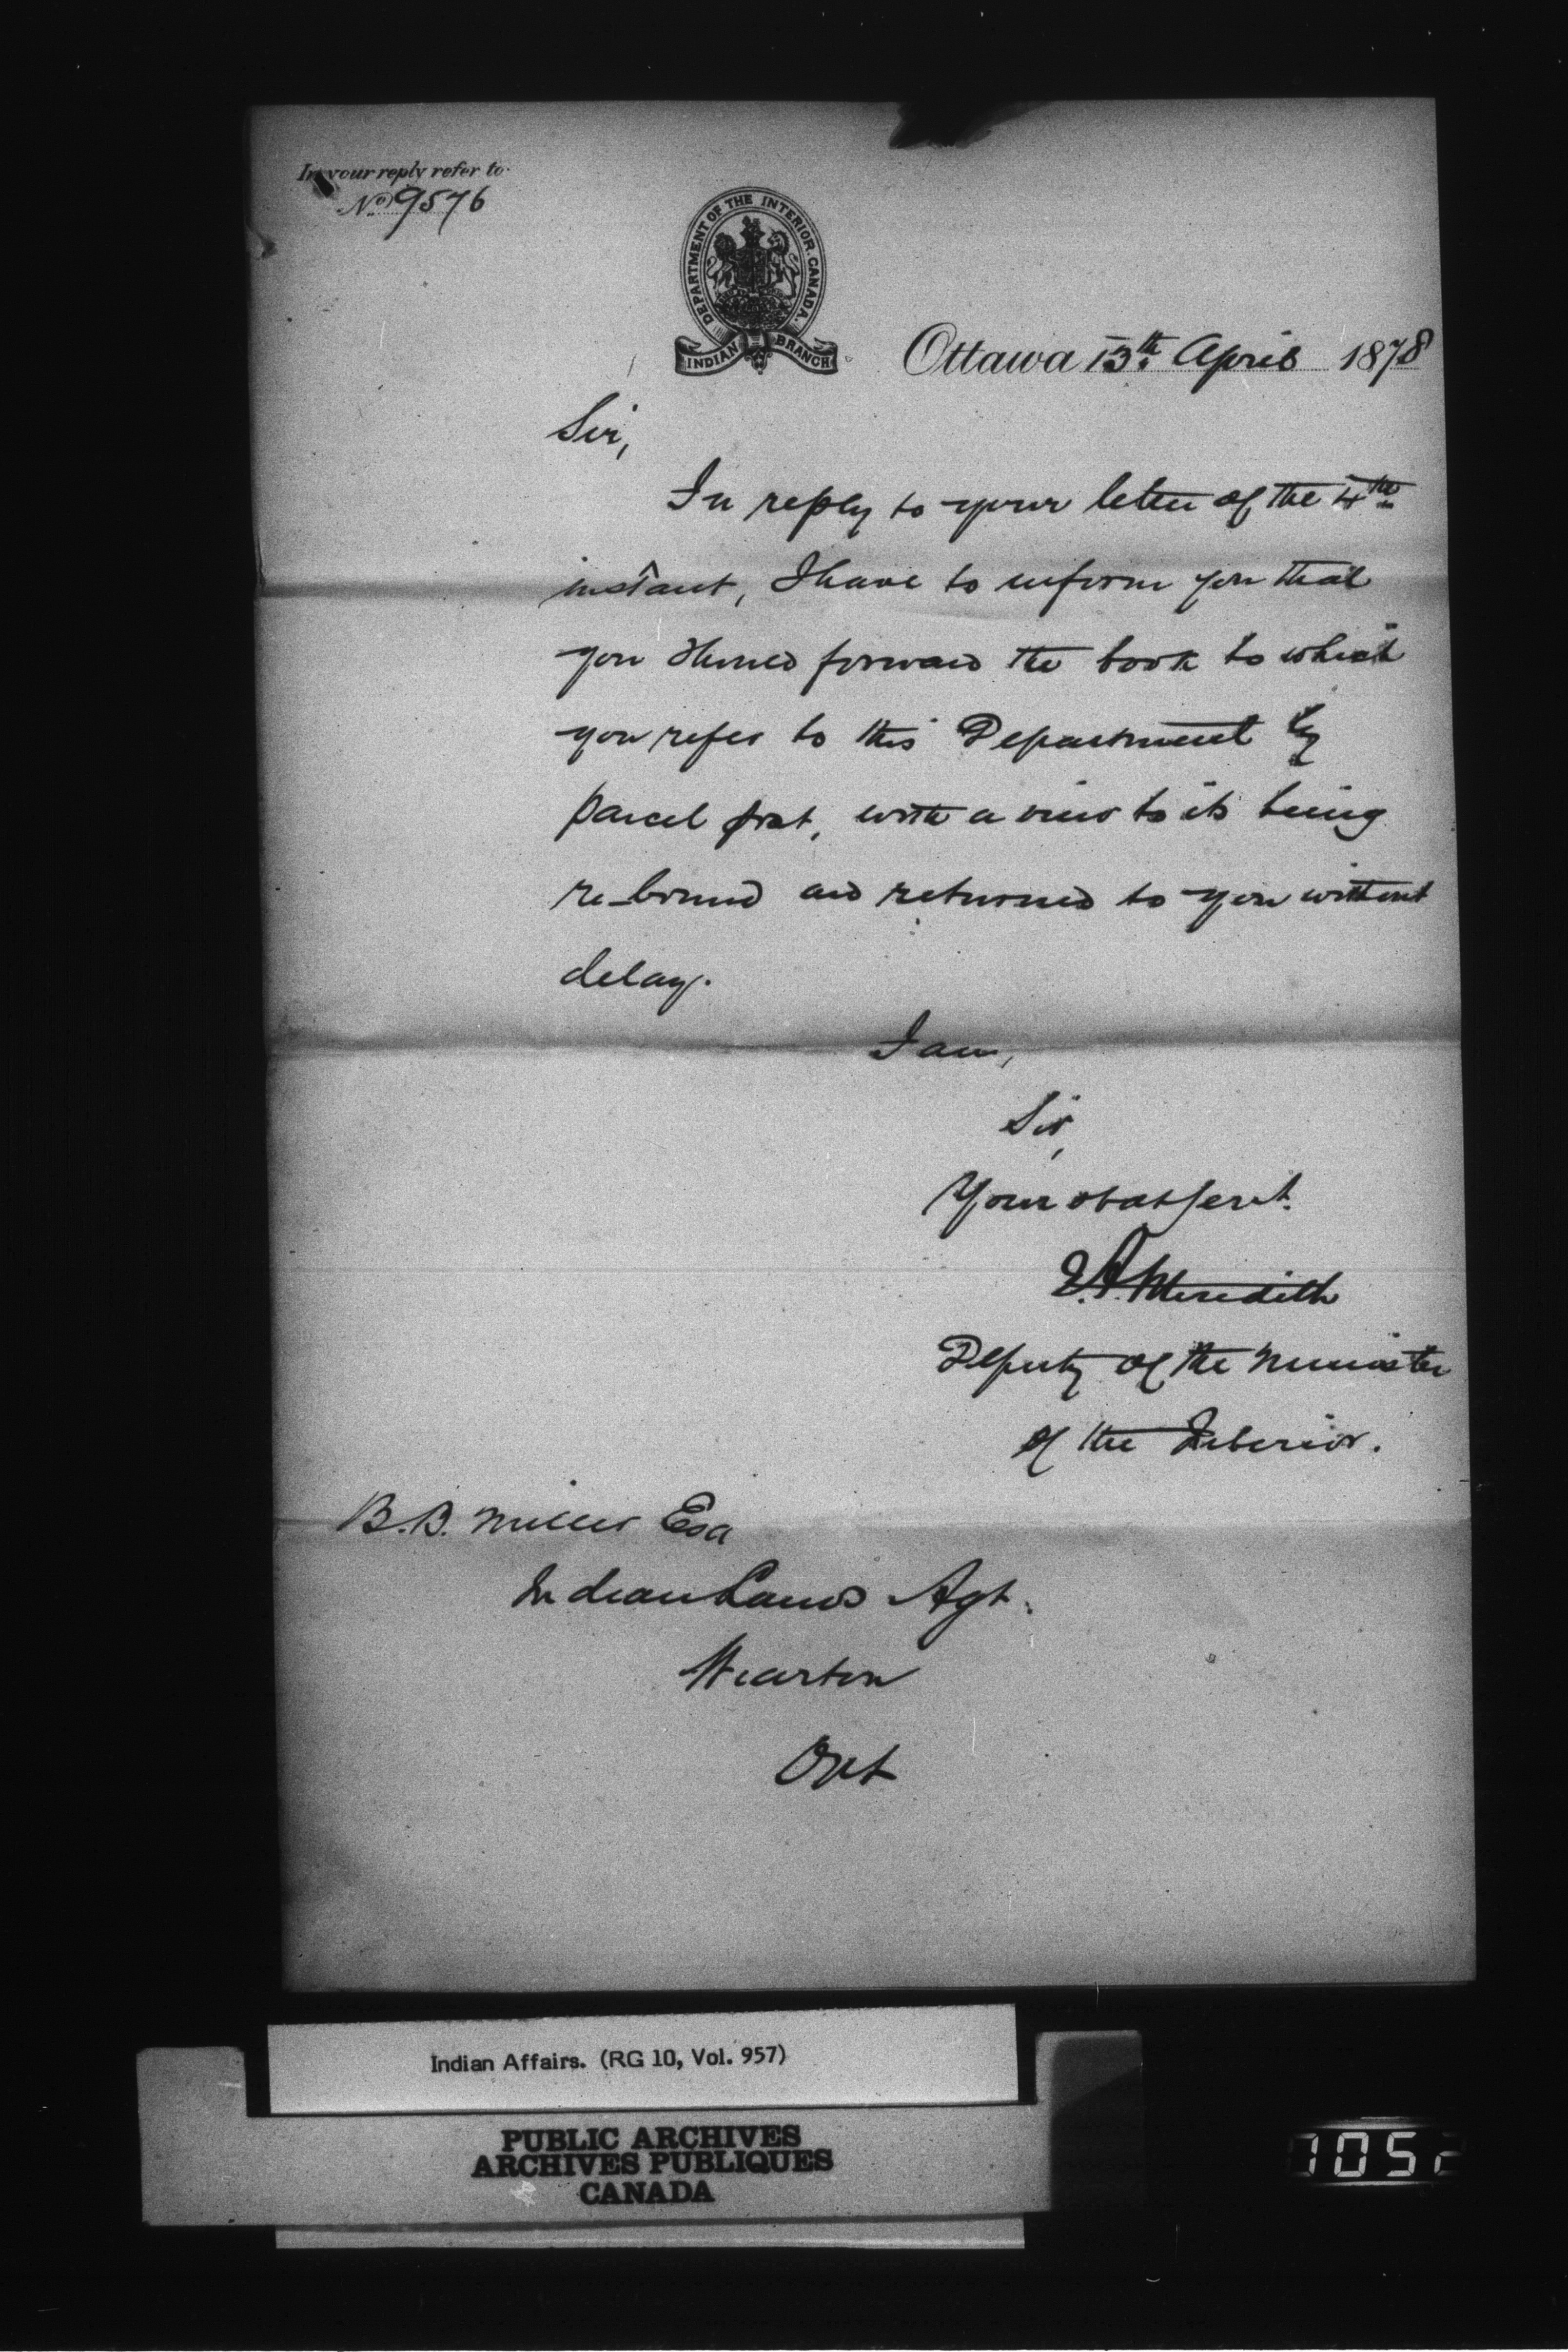 In your reply refer to
No 9576
DEPARTMENT OF THE INTERIOR. CANADA.
INDIAN BRANCH
Ottawa 13th April 1878
Sir,
In reply to your letter of the 4th
instant, I have to inform you that
you should forward the book to which
you refer to this Department by
parcel post, with a view to its being
re-bound and returned to you without
delay.
I am,
Sir,
Your obdt Servt.
E.A. Meredith
Deputy of the Minister
of the Interior.
B.B. Miller Esq
Indian Lands Agt.
Wiarton
Ont
Indian Affairs. (RG 10, Vol. 957)
PUBLIC ARCHIVES
ARCHIVES PUBLIQUES
CANADA
1052